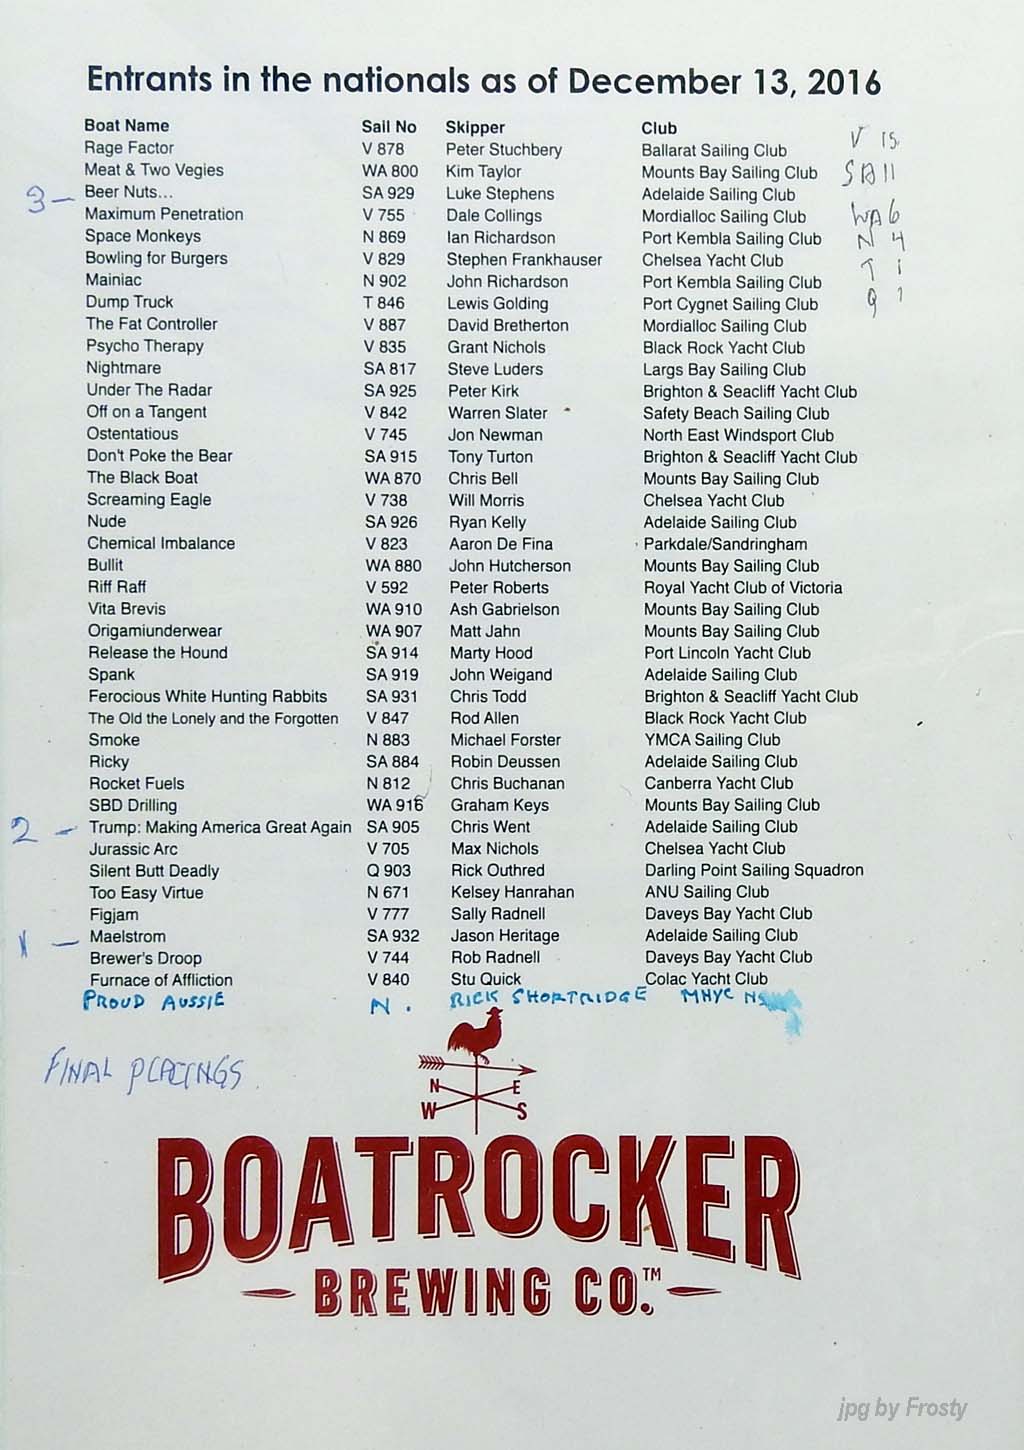 Entrants in the nationals as of December 13, 2016
Boat Name Sail No Skipper Club
Rage Factor V 878 Peter Stuchbery Ballarat Sailing Club V 15
Meat & Two Vegies WA 800 Kim Taylor Mounts Bay Sailing Club SA 11
3 – Beer Nuts... SA 929 Luke Stephens Adelaide Sailing Club
Maximum Penetration V 755 Dale Collings Mordialloc Sailing Club WA 6
Space Monkeys N 869 Ian Richardson Port Kembla Sailing Club N 4
Bowling for Burgers V 829 Stephen Frankhauser Chelsea Yacht Club T 1
Mainiac N 902 John Richardson Port Kembla Sailing Club
Dump Truck T 846 Lewis Golding Port Cygnet Sailing Club Q 1
The Fat Controller V 887 David Bretherton Mordialloc Sailing Club
Psycho Therapy V 835 Grant Nichols Black Rock Yacht Club
Nightmare SA 817 Steve Luders Largs Bay Sailing Club
Under The Radar SA 925 Peter Kirk Brighton & Seacliff Yacht Club
Off on a Tangent V 842 Warren Slater Safety Beach Sailing Club
Ostentatious V 745 Jon Newman North East Windsport Club
Don't Poke the Bear SA 915 Tony Turton Brighton & Seacliff Yacht Club
The Black Boat WA 870 Chris Bell Mounts Bay Sailing Club
Screaming Eagle V 738 Will Morris Chelsea Yacht Club
Nude SA 926 Ryan Kelly Adelaide Sailing Club
Chemical Imbalance V 823 Aaron De Fina Parkdale/Sandringham
Bullit WA 880 John Hutcherson Mounts Bay Sailing Club
Riff Raff V 592 Peter Roberts Royal Yacht Club of Victoria
Vita Brevis WA 910 Ash Gabrielson Mounts Bay Sailing Club
Origamiunderwear WA 907 Matt Jahn Mounts Bay Sailing Club
Release the Hound SA 914 Marty Hood Port Lincoln Yacht Club
Spank SA 919 John Weigand Adelaide Sailing Club
Ferocious White Hunting Rabbits SA 931 Chris Todd Brighton & Seacliff Yacht Club
The Old the Lonely and the Forgotten V 847 Rod Allen Black Rock Yacht Club
Smoke N 883 Michael Forster YMCA Sailing Club
Ricky SA 884 Robin Deussen Adelaide Sailing Club
Rocket Fuels N 812 Chris Buchanan Canberra Yacht Club
SBD Drilling WA 916 Graham Keys Mounts Bay Sailing Club
2 – Trump: Making America Great Again SA 905 Chris Went Adelaide Sailing Club
Jurassic Arc V 705 Max Nichols Chelsea Yacht Club
Silent Butt Deadly Q 903 Rick Outhred Darling Point Sailing Squadron
Too Easy Virtue N 671 Kelsey Hanrahan ANU Sailing Club
Figjam V 777 Sally Radnell Daveys Bay Yacht Club
1 – Maelstrom SA 932 Jason Heritage Adelaide Sailing Club
Brewer's Droop V 744 Rob Radnell Daveys Bay Yacht Club
Furnace of Affliction V 840 Stu Quick Colac Yacht Club
PROUD AUSSIE N. RICK SHORTRIDGE MHYC
FINAL PLACINGS.
N E
W S
BOATROCKER
BREWING CO.™
jpg by Frosty